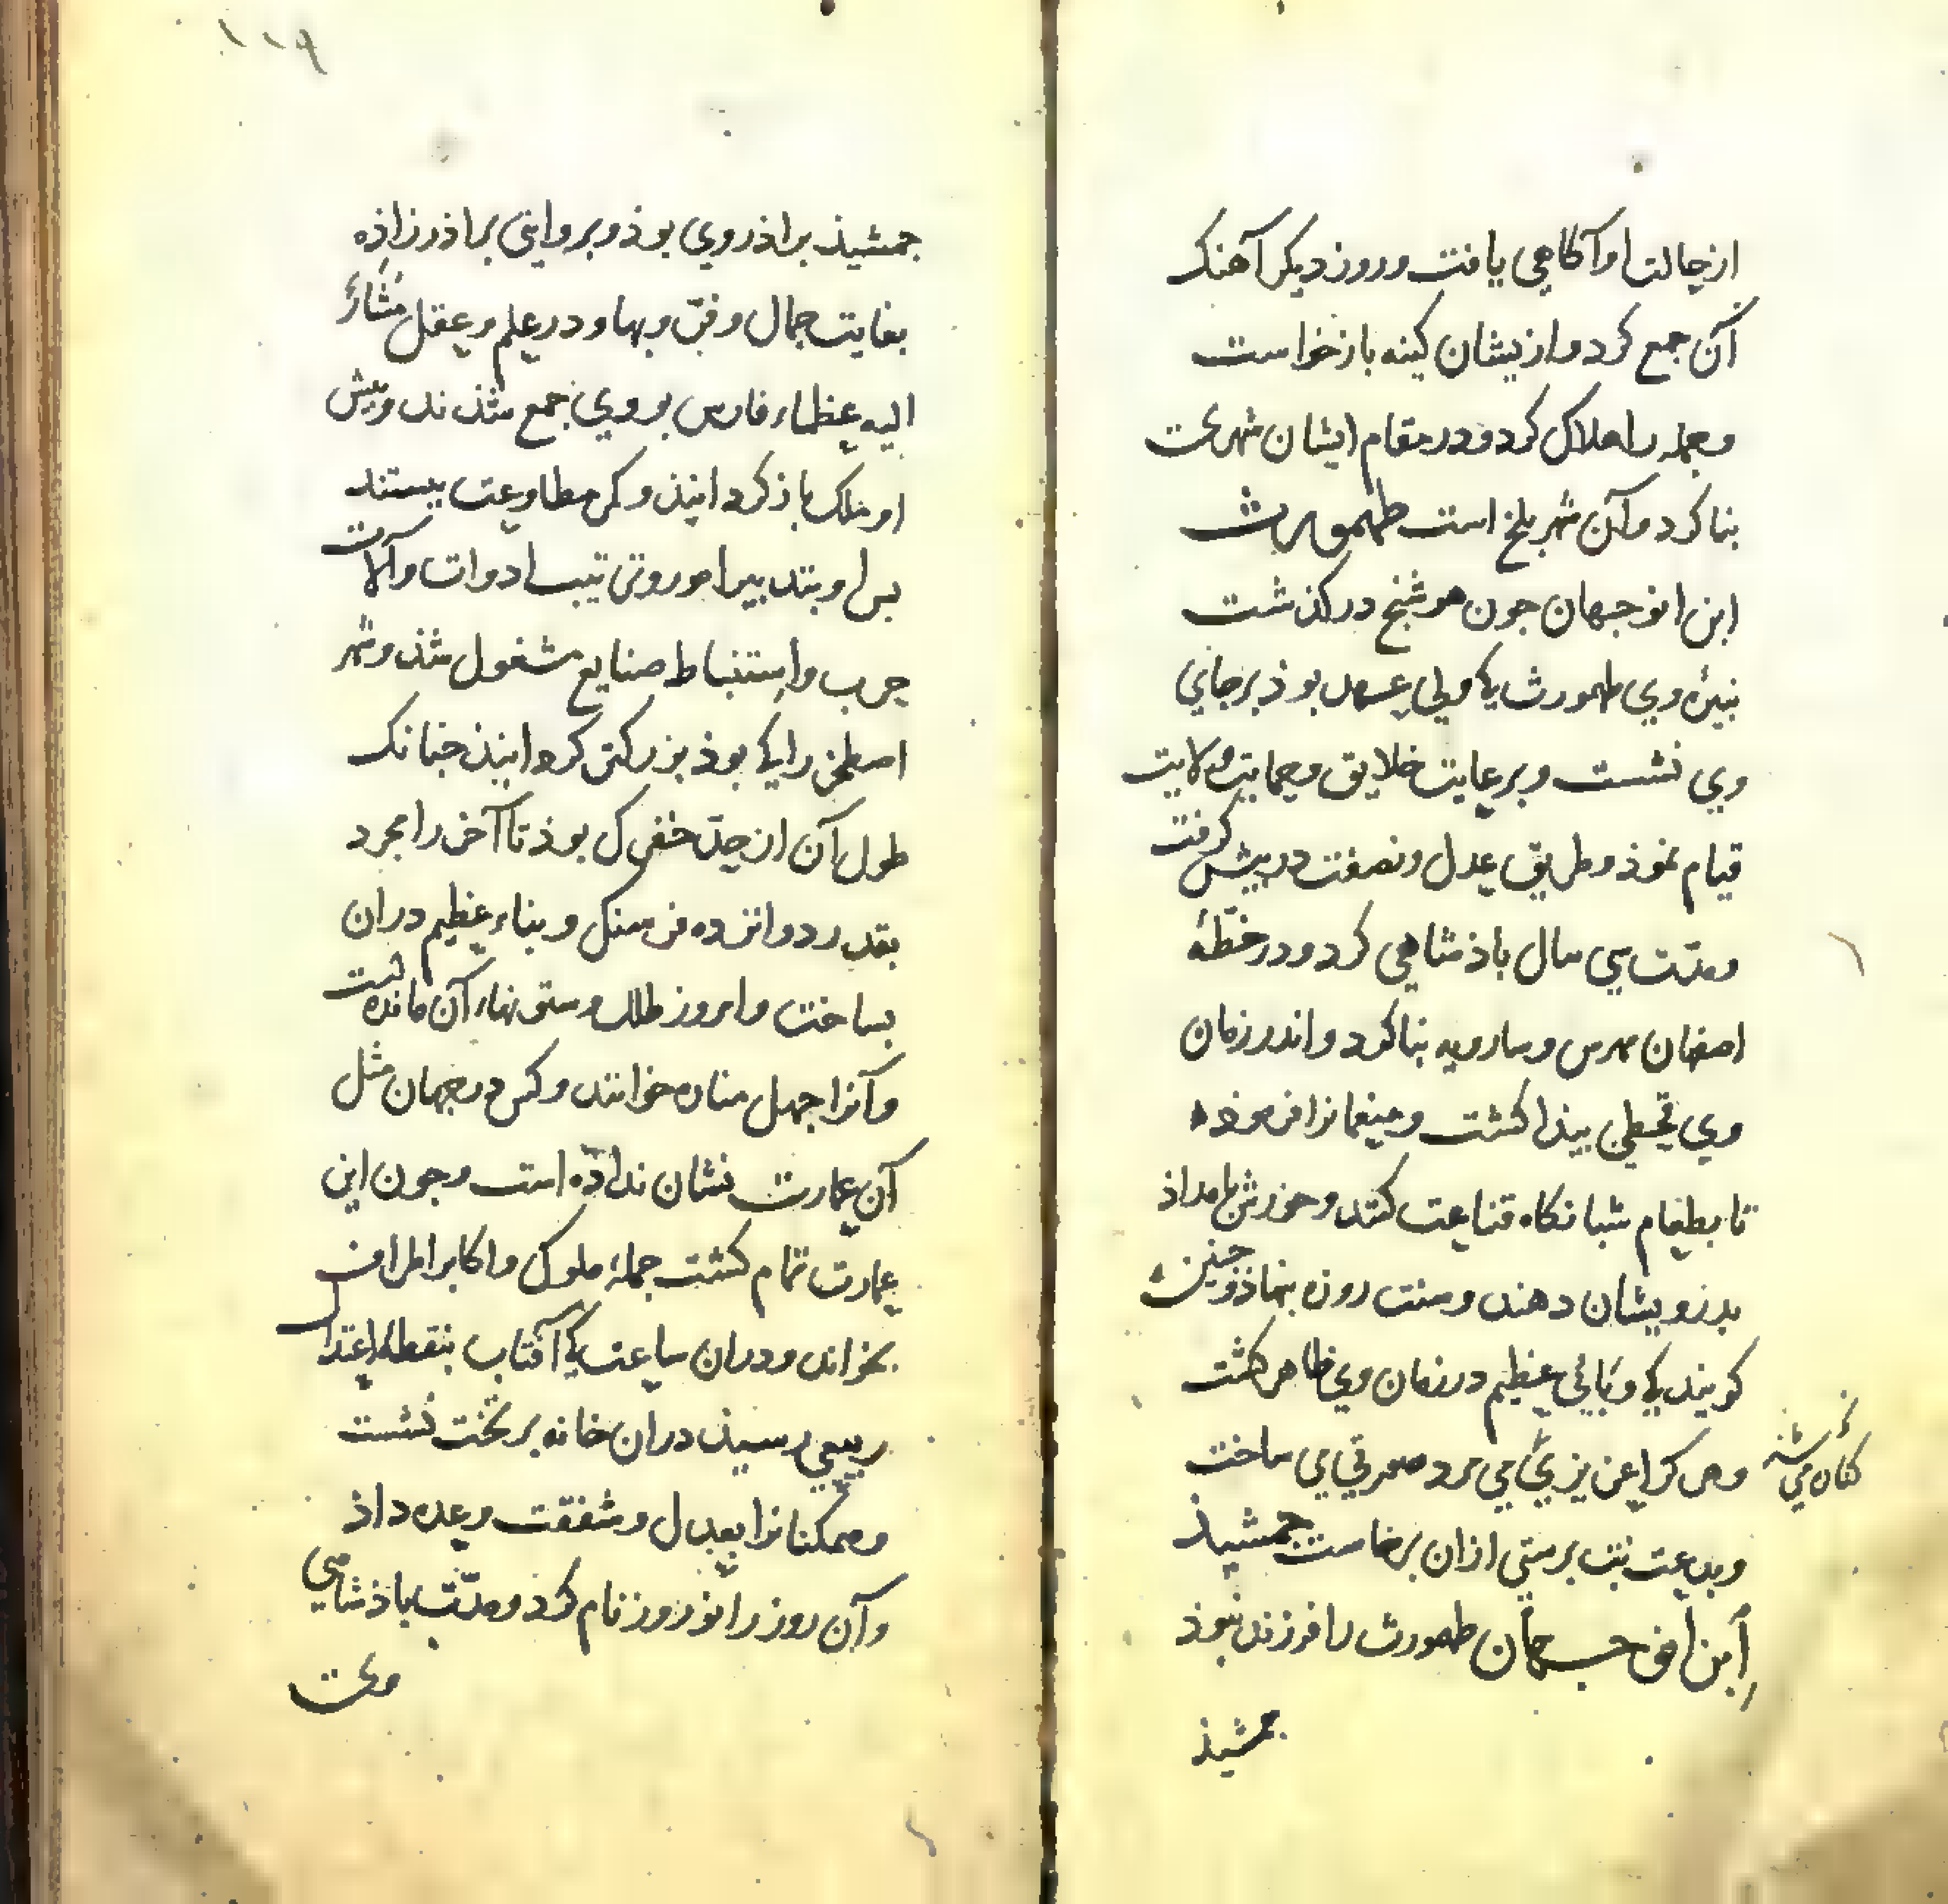 از حالت او آگاهی یافت و روز دیکر آهنک
آن جمع کرد و ازیشان کینه بازخواست
و جمله را هلاک کرد و در مقام ایشان شهری
بنا کرد و آن شهر بلخ است طهمورث
ابن انوجهان جون هوشنج درکذشت
نبیرهٔ وی طهمورث کی ولی عهد بوذ بر جای
وی نشست و برعایت خلایق و حمایت ولایت
قیام نموذ و طریق عدل و نصفت در پیش کرفت
و مدّت سی سال باذشاهی کرد و در خطّهٔ
اصفهان مهرس و سارویه بنا کرد و اندر زمان
وی قحطی بیذا کشت و منعمانرا فرموذ
تا بطعام شبانکاه قناعت کنند و خورش بامداذ
بدرویشان دهند و سنت روزه بنهاذ و جنین
کویند کی وبائی عظیم در زمان وی ظاهر کشت
و هر کرا عزیزی می مرد صورتی می ساخت
کتاه می شد
و بدعت بت برستی ازان برخاست جمشیذ
ابن انوجهان طهمورث را فرزند نبوذ
جمشیذ
۱۱۹
جمشیذ براذر وی بوذ و بروایتی براذرزاذه
بغایت جمال و فرّ و بها و در علم و عقل مشار
الیه عظماء فارس بر وی جمع شذند و بیش
او ملک باز کردانیذ و کمر مطاوعت ببستند
بس او بتدبیر امور و ترتیب ادوات و آلات
حرب و استنباط صنایع مشغول شذ و شهر
اصطخر را کی بوذ بزرکتر کردانیذ جنانک
طول آن از حدّ خفرک بوذ تا آخر رامجرد
بقدر دوانزده فرسنک و بناء عظیم دران
بساخت و امروز طلل و ستونهاء آن مانده است
و آنرا جهل مناره خوانند و کس در جهان مثل
آن عمارت نشان نداذه است و جون این
عمارت تمام کشت جملهٔ ملوک و اکابر اطراف
بخواند و دران ساعت کی آفتاب بنقطهٔ اعتدال
ربیعی رسیذ دران خانه بر تخت نشست
و همکنانرا بعدل و شفقت وعده داذ
و آن روز را نوروز نام کرد و مدّت باذشاهی